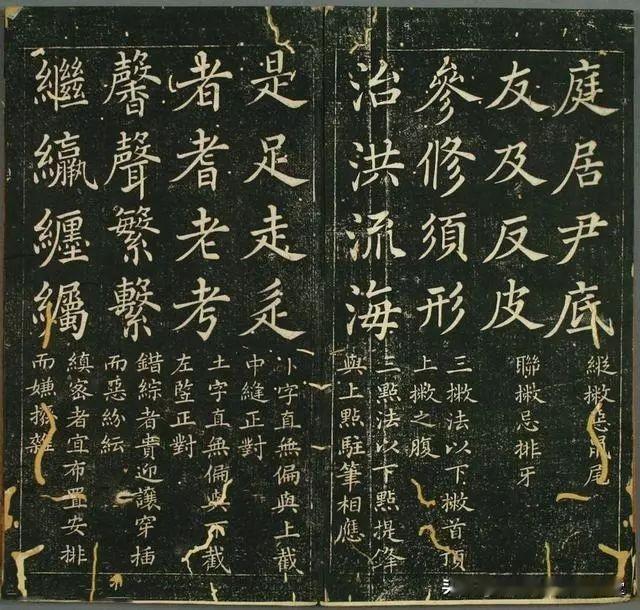 庭居尹底
縱撇忌鼠尾
友及反皮
聯撇忌排牙
參修須形
三撇法以下撇首頂
上撇之腹
治洪流海
三點法以下點提鋒
與上點駐筆相應
是足走辵
卜字直無偏與上截
中縫正對
者耆老考
土字直無偏與下截
左墜正對
馨聲繁繫
錯綜者貴迎讓穿插
而惡紛紜
繼纏
縝密者宜布置安排
而嫌雜